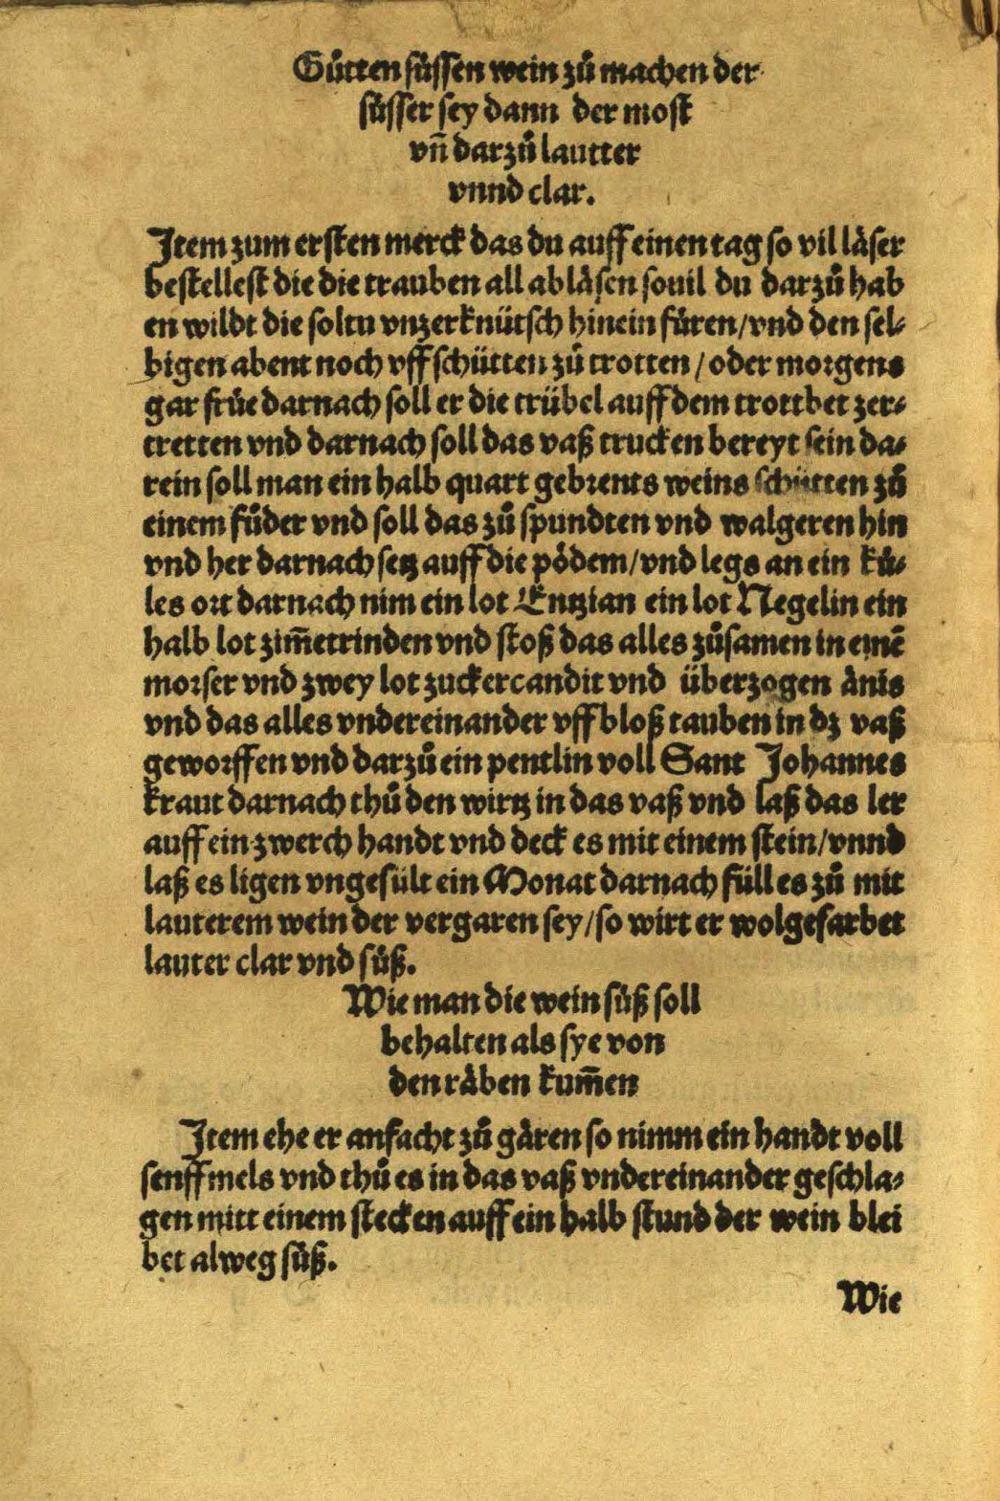 Gůtten süssen wein zů machen der
süsser sey dann der most
vñ darzů lautter
vnnd clar.
Item zum ersten merck das du auff einen tag so vil läser
bestellest die die trauben all abläsen souil du darzů hab
en wildt die soltu vnzerknütsch hinein füren/vnd den sel⸗
bigen abent noch vff schütten zů trotten/oder morgens
gar früe darnach soll er die trübel auff dem trottbet zer⸗
tretten vnd darnach soll das vaß trucken bereyt sein da⸗
rein soll man ein halb quart gebrents weins schütten zů
einem fůder vnd soll das zů spundten vnd walgeren hin
vnd her darnach setz auff die pödem/vnd legs an ein kü⸗
les ort darnach nim ein lot Entzian ein lot Negelin ein
halb lot zim̃etrinden vnd stoß das alles zůsamen in einē
morser vnd zwey lot zuckercandit vnd überzogen änis
vnd das alles vndereinander vff bloß tauben in dz vaß
geworffen vnd darzů ein pentlin voll Sant Johannes
kraut darnach thů den wirtz in das vaß vnd laß das ler
auff ein zwerch handt vnd deck es mit einem stein/vnnd
laß es ligen vngefült ein Monat darnach füll es zů mit
lauterem wein der vergaren sey/so wirt er wolgefarbet
lauter clar vnd süß.
Wie man die wein süß soll
behalten als sye von
den räben kum̃en
Item ehe er anfacht zů gären so nimm ein handt voll
senffmels vnd thů es in das vaß vndereinander geschla⸗
gen mitt einem stecken auff ein halb stund der wein blei
bet alweg süß.
Wie